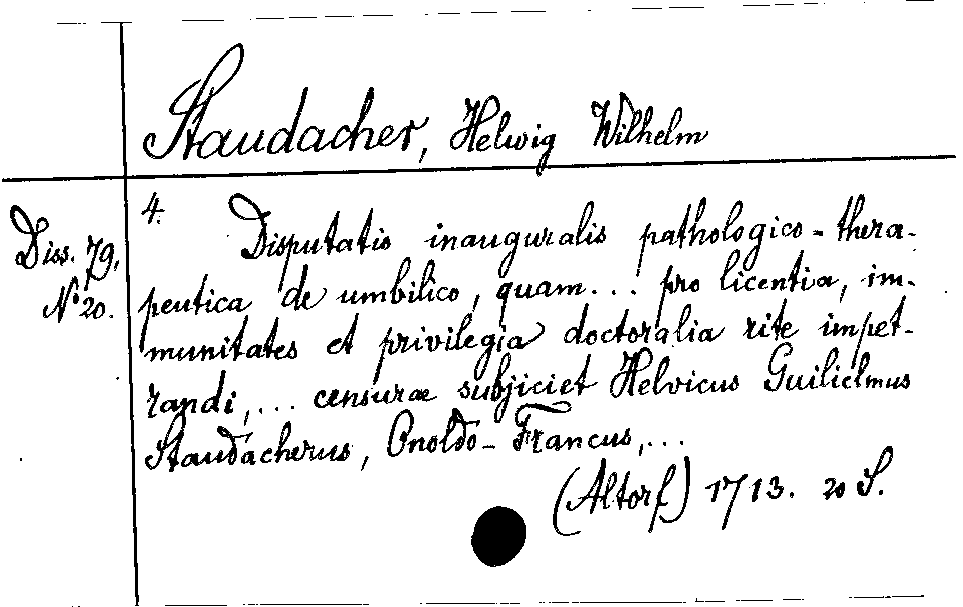 Staudacher, Helwig Wilhelm
Diss. 79,
No 20.
4. Disputatio inauguralis pathologico-thera-
peutica de umbilico, quam... pro licentia, im-
munitates et privilegia doctoralia rite impet-
randi,... censurae subjiciet Helvicus Guilielmus
Staudacherus, Onoldo-Francus,...
(Altorf) 1713. 20 S.